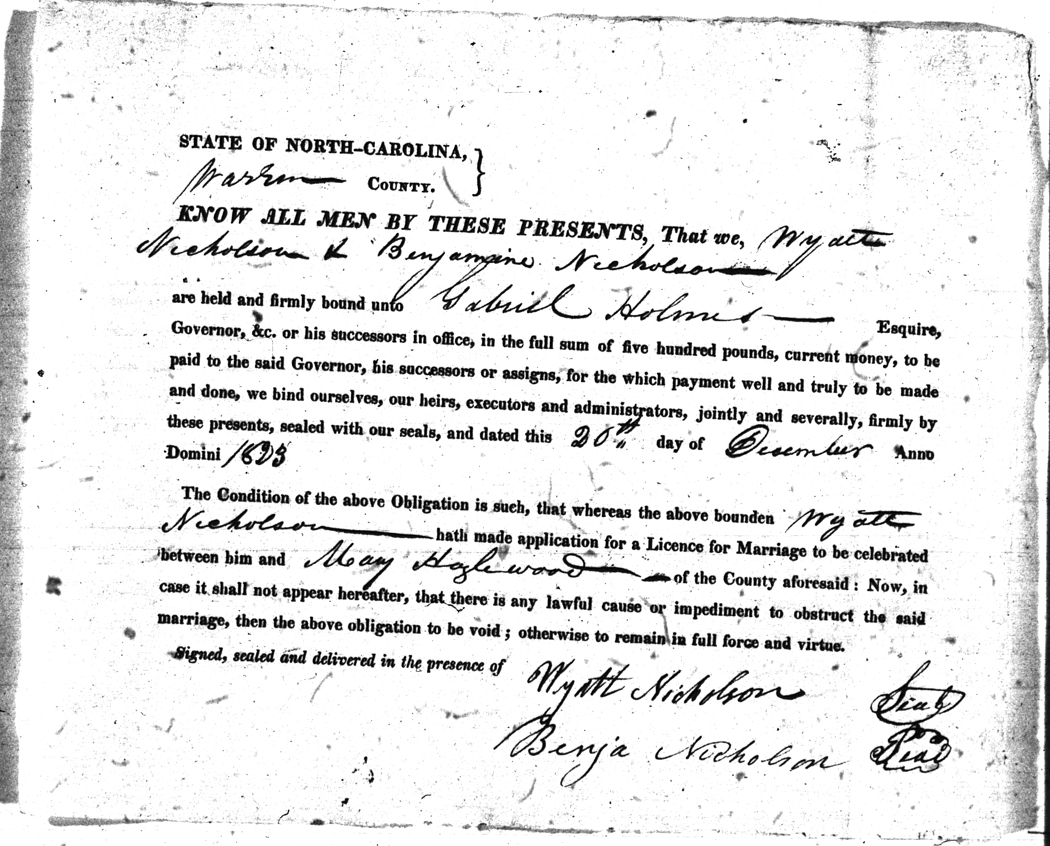 STATE OF NORTH-CAROLINA, }
Warren COUNTY.
KNOW ALL MEN BY THESE PRESENTS, That we, Wyatt
Nicholson & Benjamine Nicholson
are held and firmly bound unto Gabriel Holmes Esquire,
Governor, &c. or his successors in office, in the full sum of five hundred pounds, current money, to be
paid to the said Governor, his successors or assigns, for the which payment well and truly to be made
and done, we bind ourselves, our heirs, executors and administrators, jointly and severally, firmly by
these presents, sealed with our seals, and dated this 20th day of December Anno
Domini 1823
The Condition of the above Obligation is such, that whereas the above bounden Wyatt
Nicholson hath made application for a Licence for Marriage to be celebrated
between him and May Hazlewood of the County aforesaid: Now, in
case it shall not appear hereafter, that there is any lawful cause or impediment to obstruct the said
marriage, then the above obligation to be void; otherwise to remain in full force and virtue.
Signed, sealed and delivered in the presence of
Wyatt Nicholson Seal
Benja Nicholson Seal